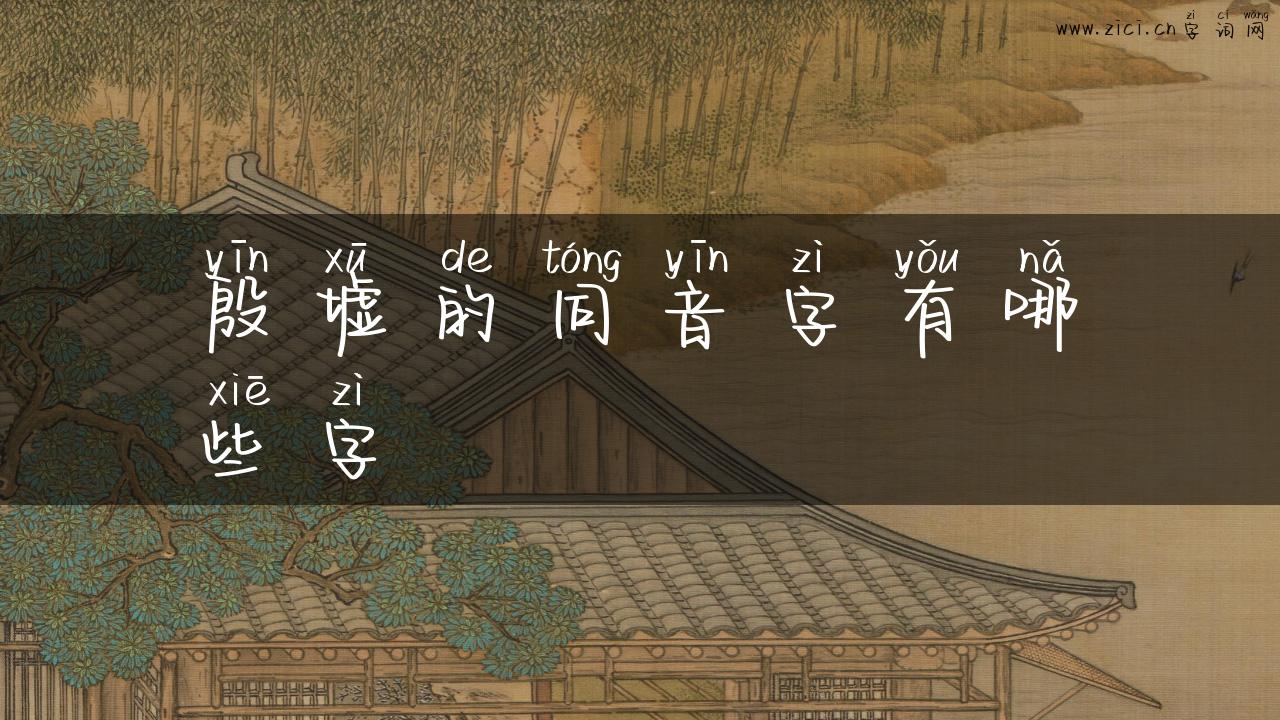 zì cí wǎng
www.zici.cn字词网
yīn xū de tóng yīn zì yǒu nǎ
殷墟的同音字有哪
xiē zì
些字